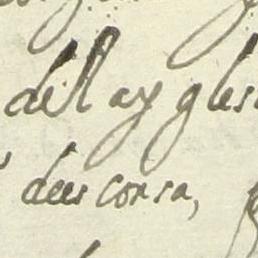 del ay gles
deescorsa,